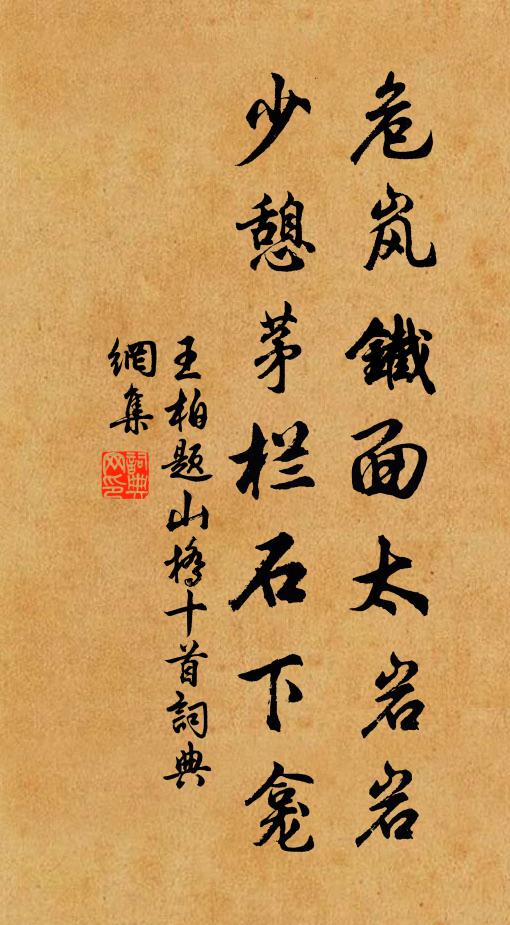 危岚鐵面太岩岩
少憩茅栏石下龛
王柏题山橋十首詞典
網集
詞典網印